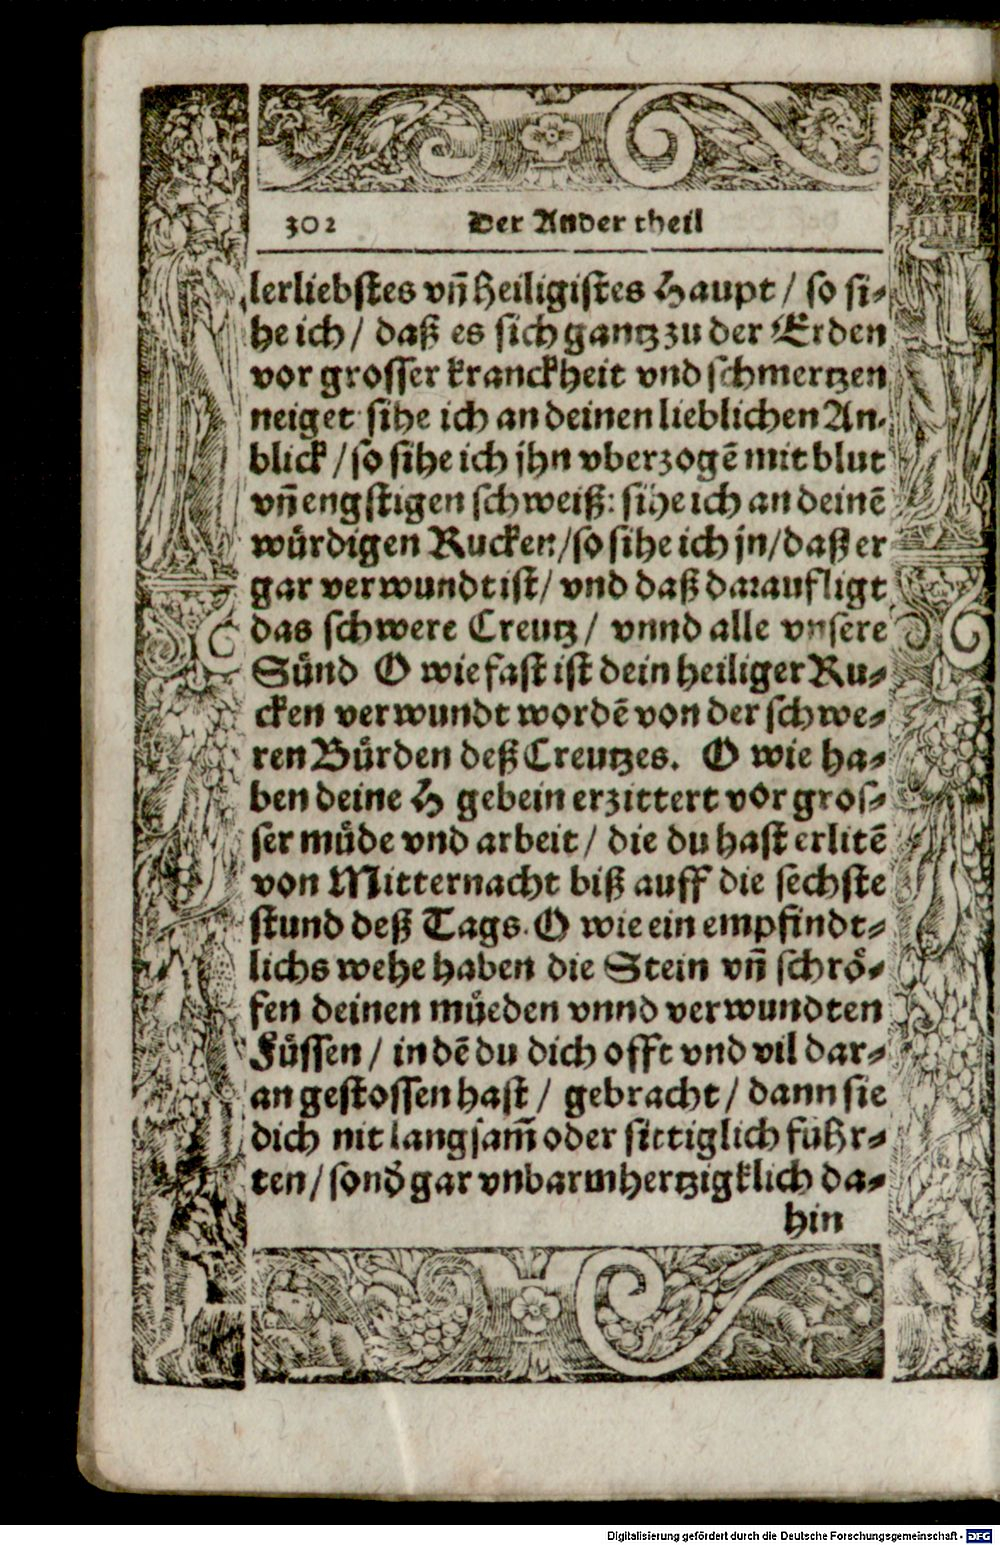 302 Der Ander theil
lerliebstes vñ heiligistes Haupt / so si-
he ich / daß es sich gantz zu der Erden
vor grosser kranckheit vnd schmertzen
neiget sihe ich an deinen lieblichen An-
blick / so sihe ich jhn vberzogẽ mit blut
vñ engstigen schweiß: sihe ich an deinẽ
wuͤrdigen Rucken / so sihe ich jn / daß er
gar verwundt ist / vnd daß darauf ligt
das schwere Creutz / vnnd alle vnsere
Suͤnd O wie fast ist dein heiliger Ru-
cken verwundt wordẽ von der schwe-
ren Buͤrden deß Creutzes. O wie ha-
ben deine H gebein erzittert vor gros-
ser muͤde vnd arbeit / die du hast erlitẽ
von Mitternacht biß auff die sechste
stund deß Tags. O wie ein empfindt-
lichs wehe haben die Stein vñ schroͤ-
fen deinen muͤeden vnnd verwundten
Fuͤssen / in dẽ du dich offt vnd vil dar-
an gestossen hast / gebracht / dann sie
dich nit langsam̃ oder sittiglich fuͤhr-
ten / sonď gar vnbarmhertzigklich da-
hin
Digitalisierung gefördert durch die Deutsche Forschungsgemeinschaft - DFG